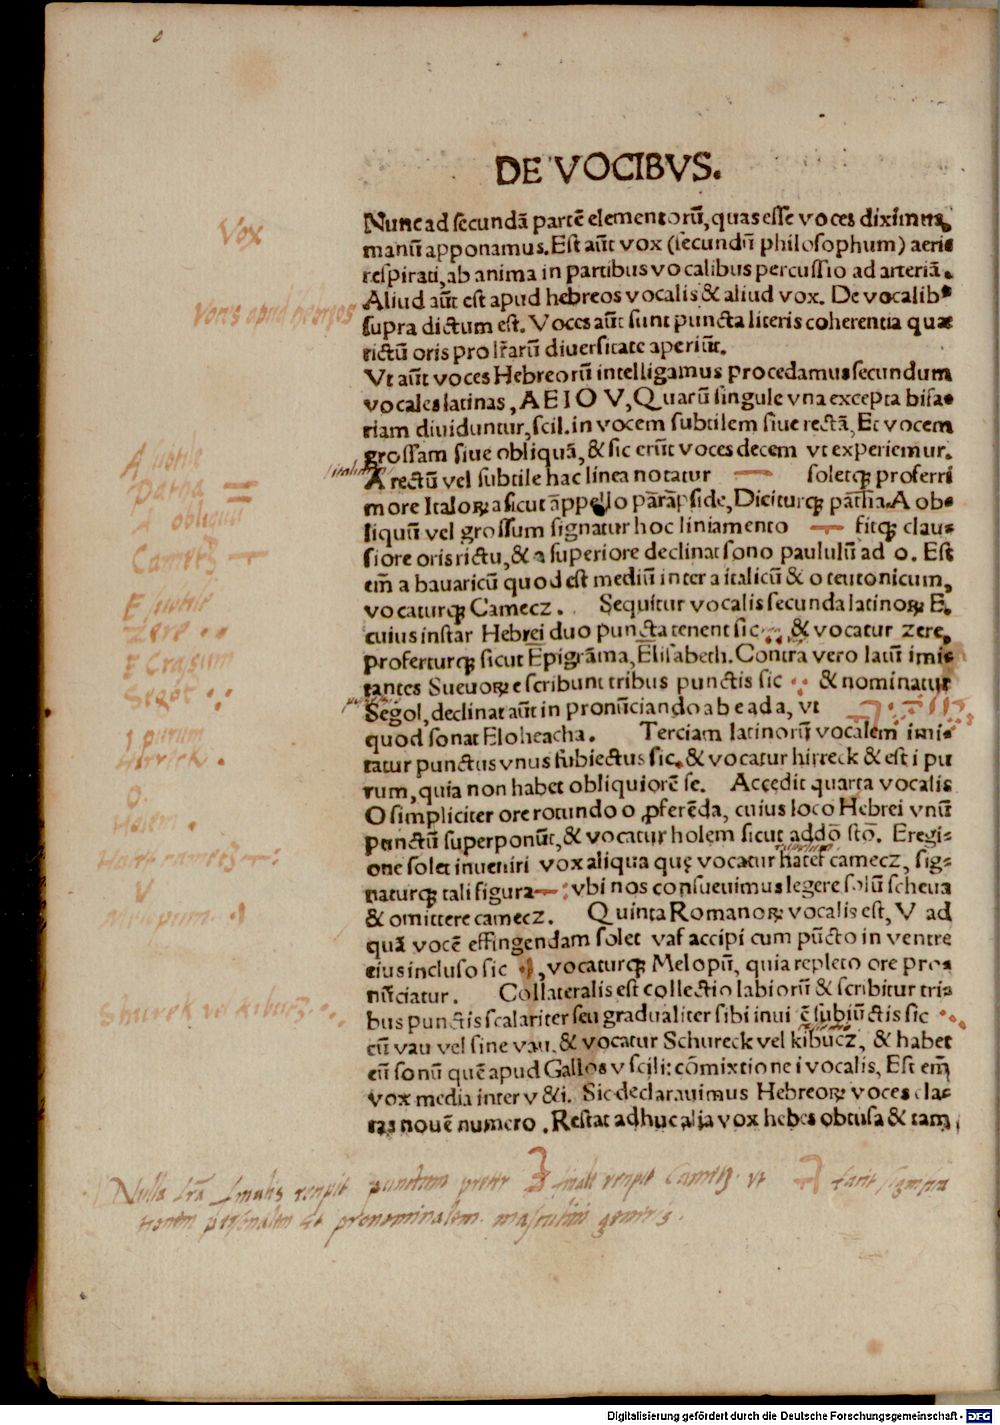 DE VOCIBVS.
Vox
Nunc ad secundã partẽ elementorũ, quas esse voces diximus,
manũ apponamus. Est aũt vox (secundũ philosophum) aeris
respirati, ab anima in partibus vocalibus percussio ad arteriã.
Aliud aũt est apud hebreos vocalis & aliud vox. De vocalibꝰ
Voces apud hebreos
supra dictum est. Voces aũt sunt puncta literis coherentia quae
rictũ oris pro lr̃arũ diuersitate aperiũt.
Vt aũt voces Hebreorũ intelligamus procedamus secundum
vocales latinas, A E I O V, Quarũ singule vna excepta bifa-
riam diuiduntur, scil. in vocem subtilem siue rectã, Et vocem
grossam siue obliquã, & sic erũt voces decem vt experiemur.
A subtile
A rectũ vel subtile hac linea notatur soletqꝫ proferri
Patha
more Italoꝝ a sicut ãppello parãpside, Diciturqꝫ patha. A ob-
A obliquũ
liquũ vel grossum signatur hoc liniamento fitqꝫ clau-
siore oris rictu, & a superiore declinat sono paululũ ad o. Est
Cametz
em̃ a bauaricũ quod est mediũ inter a italicũ & o teutonicum,
vocaturqꝫ Camecz. Sequitur vocalis secunda latinoꝝ E.
E subtile
cuius instar Hebrei duo puncta tenent sic .. & vocatur zere,
Zere ..
proferturqꝫ sicut Epigrãma, Elisabeth. Contra vero latũ imi-
E Crassum
tantes Sueuoꝝ e scribunt tribus punctis sic & nominatur
Segol
Segol, declinat aũt in pronũciando ab e ad a, vt
quod sonat Eloheacha. Terciam latinorũ vocalem imi-
I purum
tatur punctus vnus subiectus sic. & vocatur hirreck & est i pu
Hirreck .
rum, quia non habet obliquiorẽ se. Accedit quarta vocalis
O.
O simpliciter ore rotundo o ꝓferẽda, cuius loco Hebrei vnũ
Holem .
punctũ superponũt, & vocatur holem sicut addo sto. Eregi-
one solet inueniri vox aliqua quę vocatur hatef camecz, sig-
Hatef cametz
naturqꝫ tali figura : vbi nos consueuimus legere solũ scheua
V
& omittere camecz. Quinta Romanoꝝ vocalis est, V ad
Melopum
quã vocẽ effingendam solet vaf accipi cum pũcto in ventre
eius incluso sic , vocaturqꝫ Melopũ, quia repleto ore pro-
nũciatur. Collateralis est collectio labiorũ & scribitur tri-
Shureck vel kibutz
bus punctis scalariter seu gradualiter sibi inui cẽ subiũctis sic
cũ vau vel sine vau. & vocatur Schureck vel kibucz, & habet
eũ sonũ quẽ apud Gallos v scili: cõmixtione i vocalis, Est em̃
vox media inter v & i. Sic declarauimus Hebreoꝝ voces cla-
ras nouẽ numero. Restat adhuc alia vox hebes obtusa & tam
Nulla lrã finalis recipit punctum preter ך finale recipit Cametz. vt
tionem personalem et pronominalem. masculini generis.
Digitalisierung gefördert durch die Deutsche Forschungsgemeinschaft - DFG